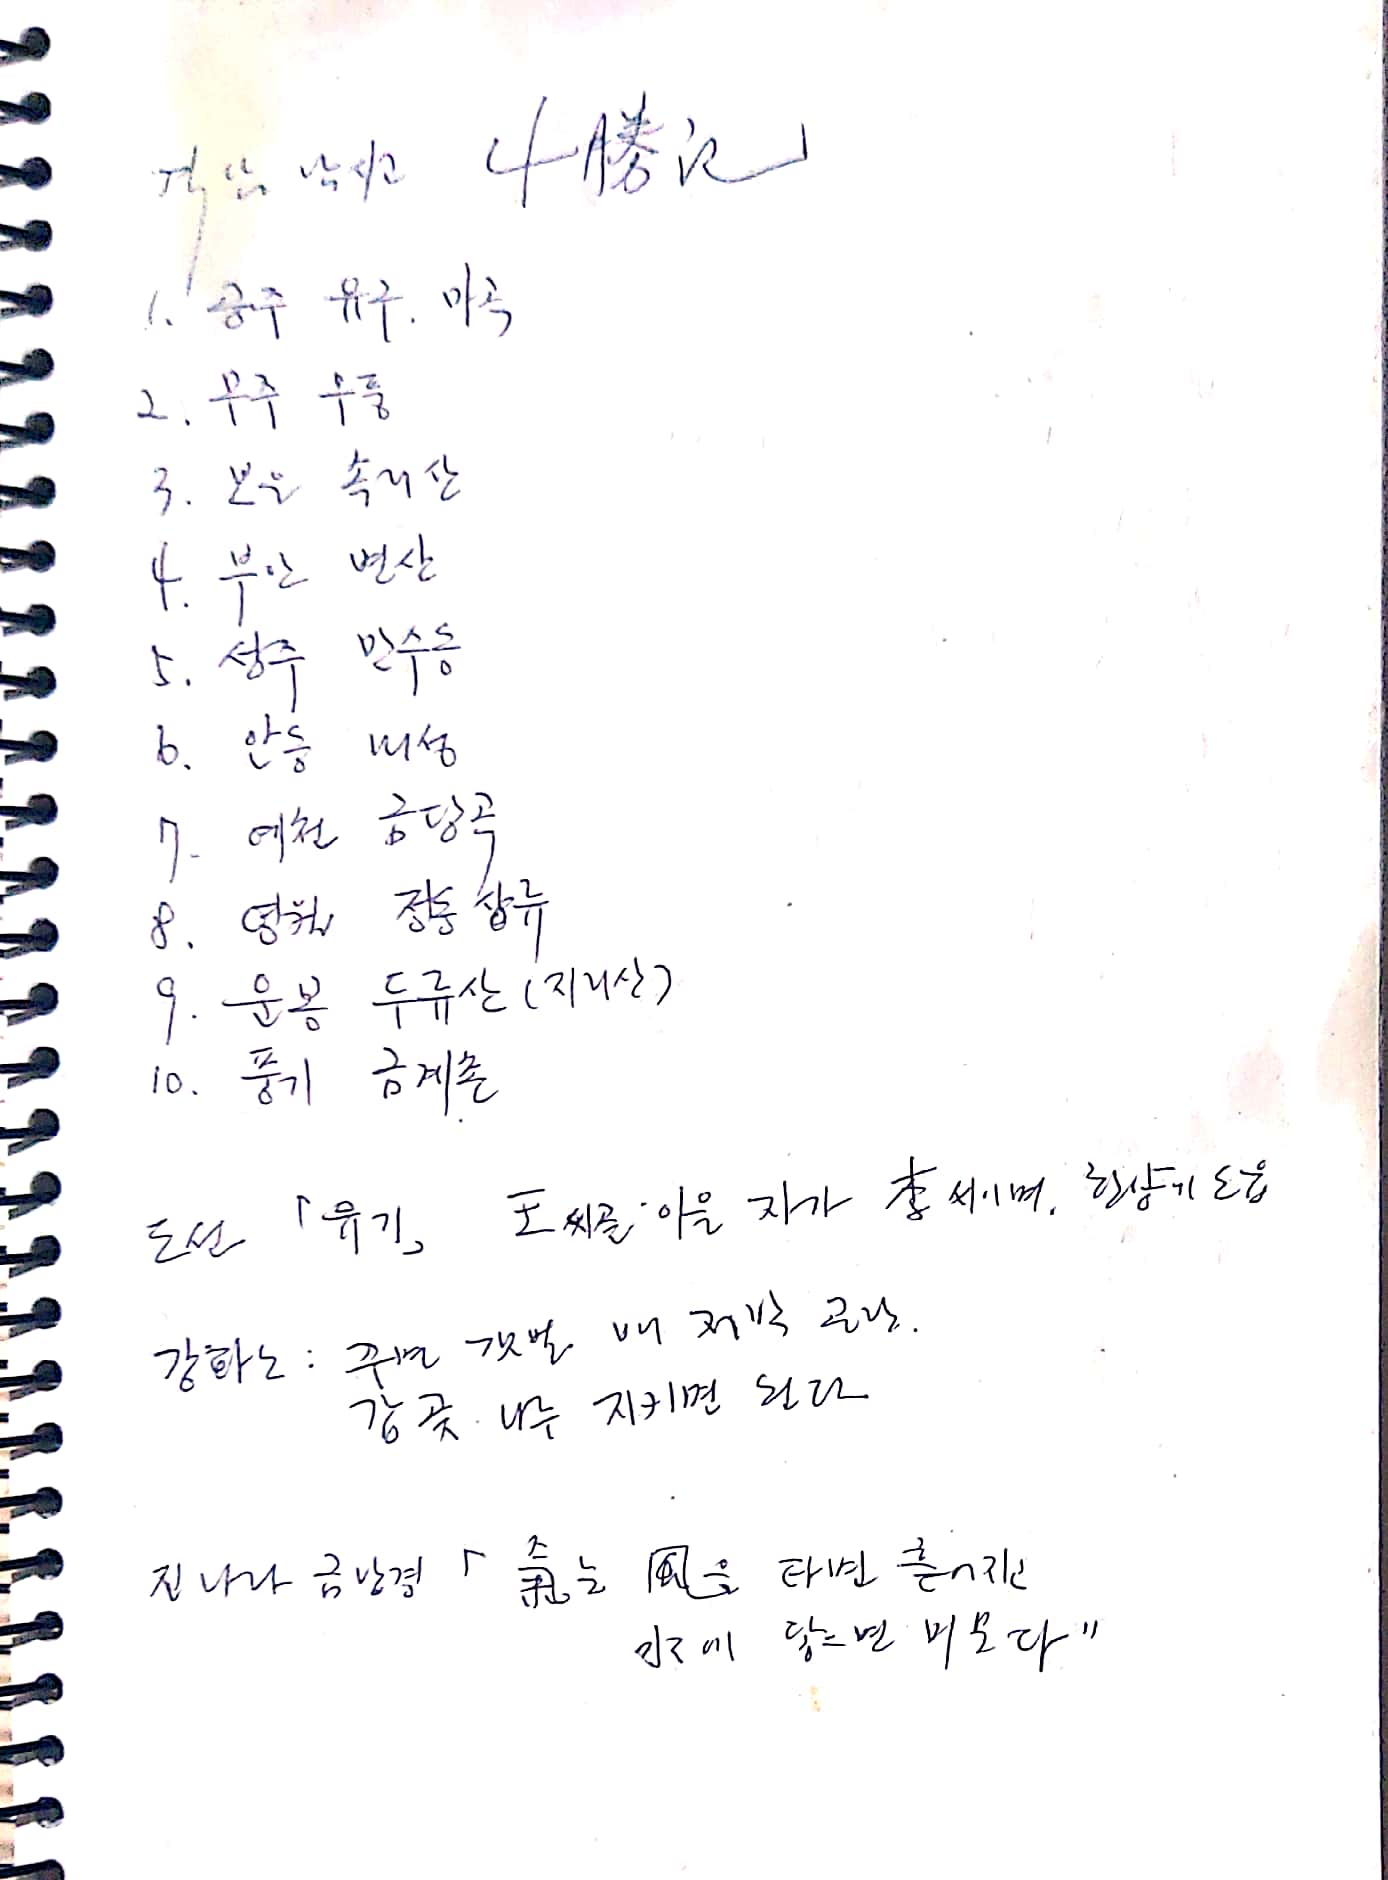 격암 남사고 十勝記」
1. 공주 유구. 마곡
2. 무주 무풍
3. 보은 속리산
4. 부안 변산
5. 성주 만수동
6. 안동 내성
7. 예천 금당곡
8. 영월 정동상류
9. 운봉 두류산 (지리산)
10. 풍기 금계촌
도선 「유기」 王씨를 이을 자가 李씨이며, 한양에 도읍
강화도: 주변 갯벌 배 제박 곤란.
갑곶 나루 지키면 된다
진나라 금낭경 「氣는 風을 타면 흩어지고
水에 닿으면 머문다"